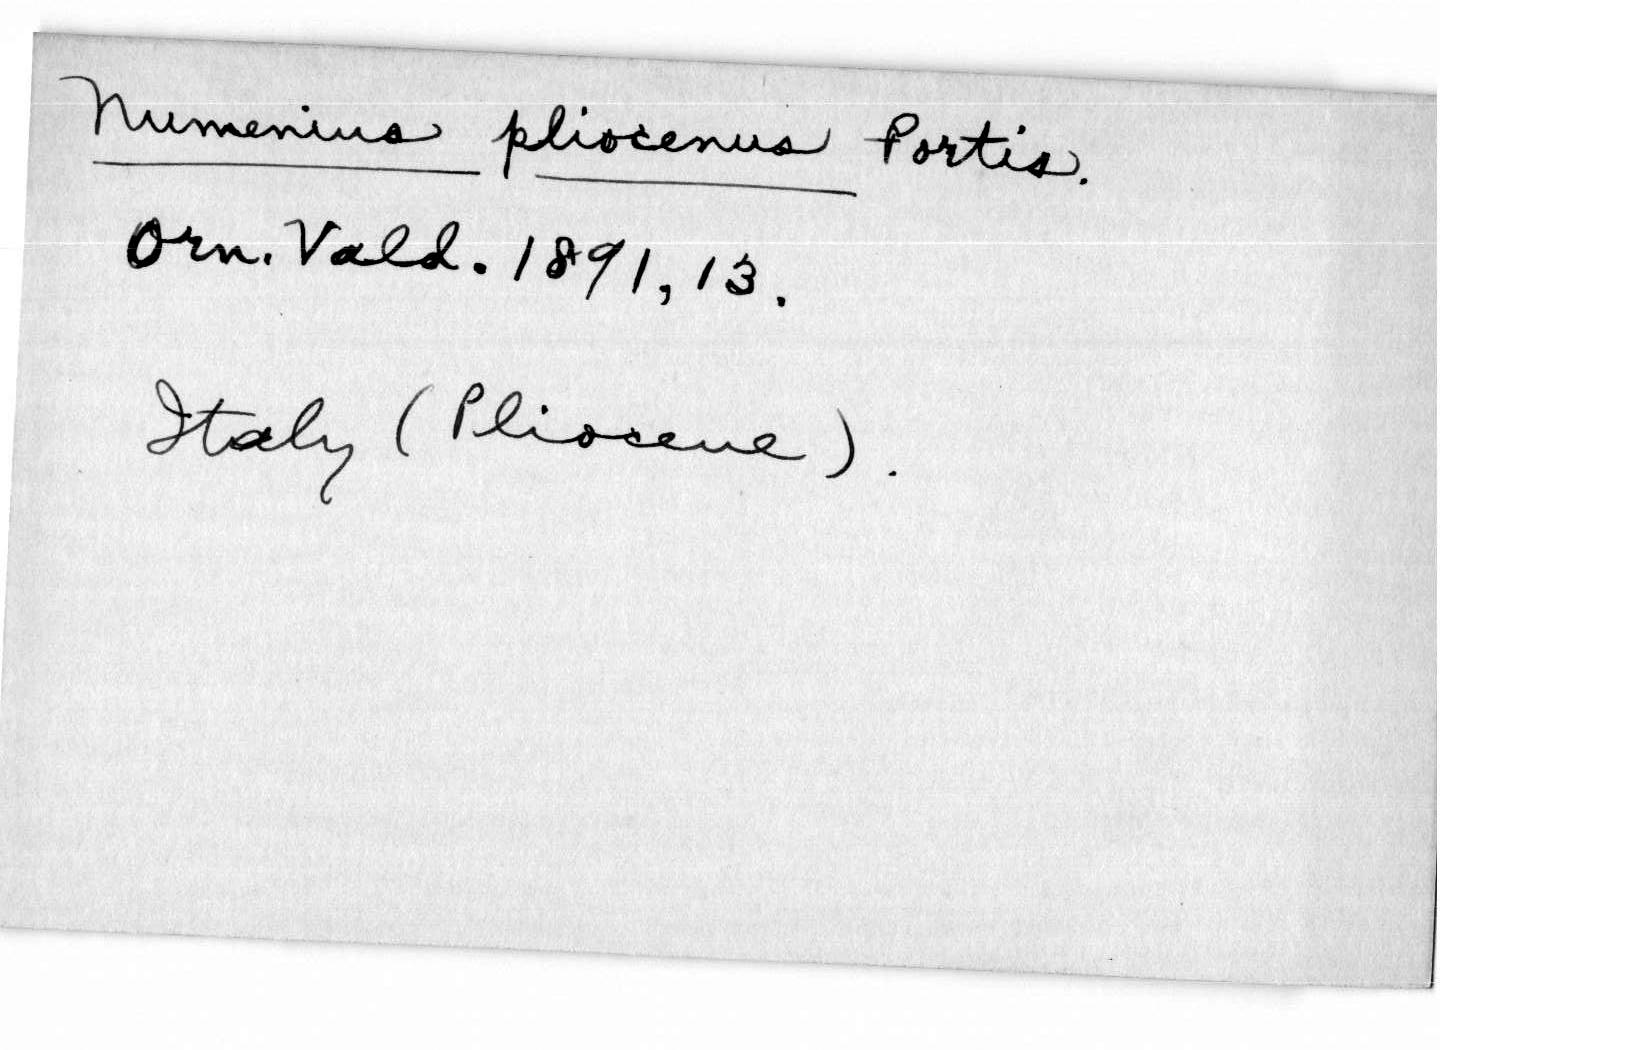 Numenius pliocenus Portis.
Orn. Vald. 1891, 13.
Italy (Pliocene).